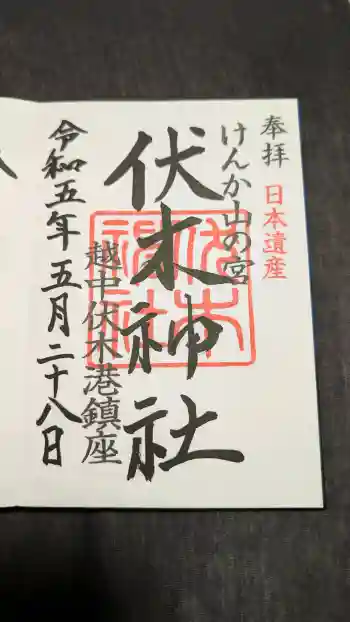 奉拝
日本遺産
けんか山の宮
伏木神社
越中伏木港鎮座
令和五年五月二十八日